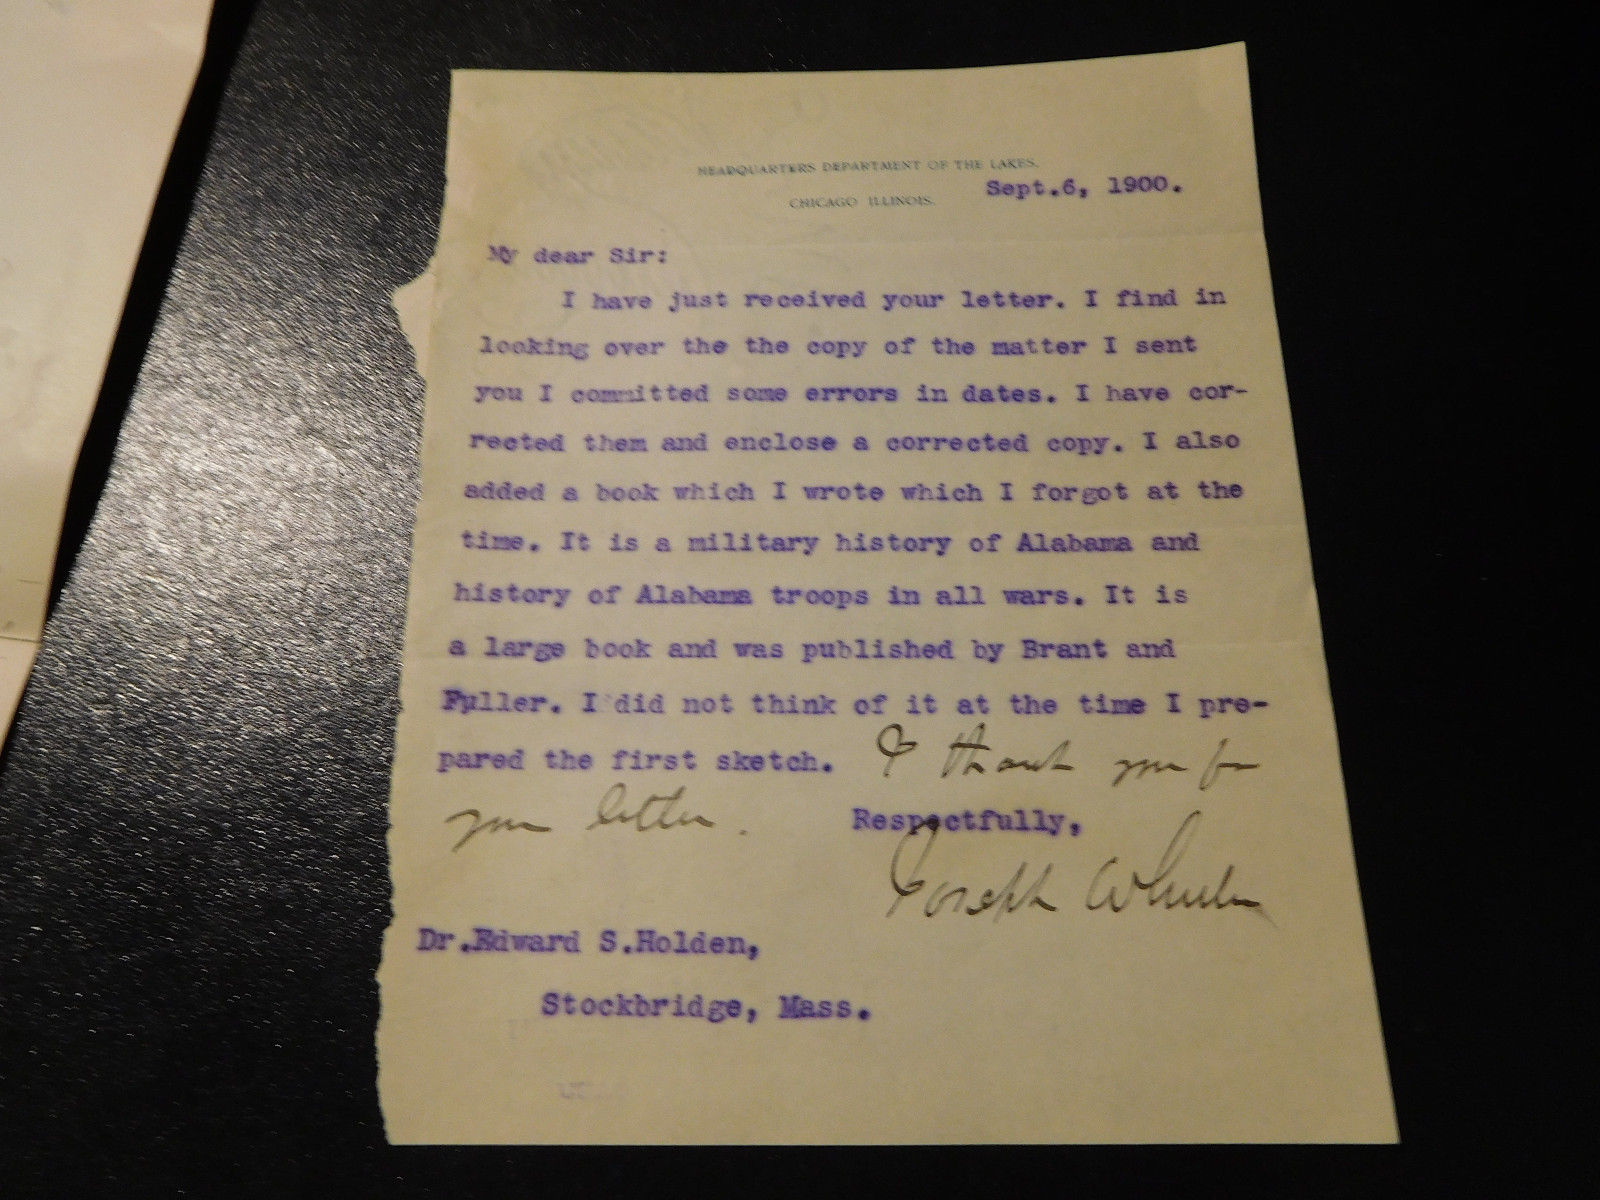 HEADQUARTERS DEPARTMENT OF THE LAKES,
CHICAGO ILLINOIS. Sept.6, 1900.
My dear Sir:
I have just received your letter. I find in
looking over the the copy of the matter I sent
you I committed some errors in dates. I have cor-
rected them and enclose a corrected copy. I also
added a book which I wrote which I forgot at the
time. It is a military history of Alabama and
history of Alabama troops in all wars. It is
a large book and was published by Brant and
Fuller. I did not think of it at the time I pre-
pared the first sketch. I thank you for
your letter. Respectfully,
Joseph Wheeler
Dr.Edward S.Holden,
Stockbridge, Mass.